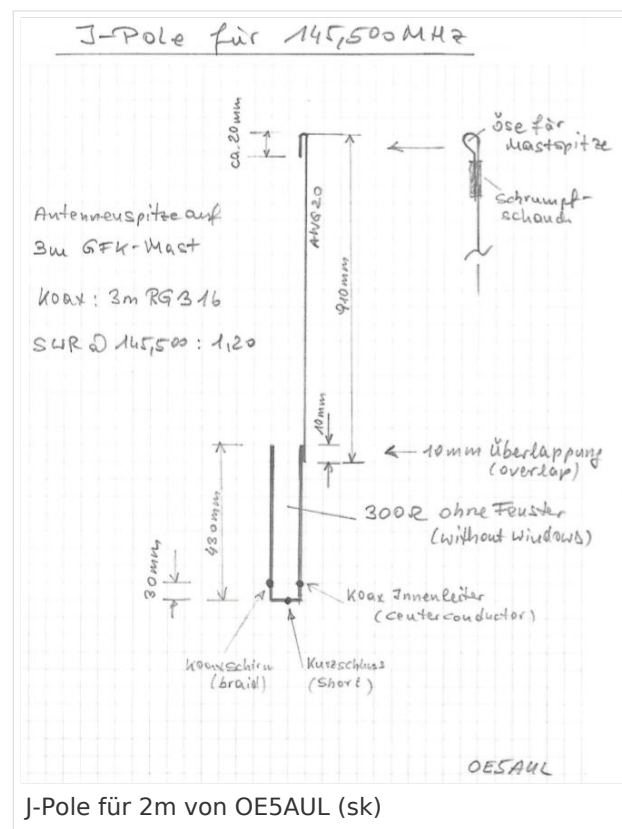 J-Pole für 145,500MHz
ca. 20mm
Öse für
Mastspitze
Schrumpf-
schlauch
AWG20
910mm
Antennenspitze auf
3m GFK-Mast
Koax: 3m RG316
SWR @ 145,500: 1,20
10mm
← 10mm Überlappung
(overlap)
430mm
300Ω ohne Fenster
(without windows)
30mm
Koax Innenleiter
(centerconductor)
Koaxschirm
(braid)
Kurzschluss
(Short)
OE5AUL
J-Pole für 2m von OE5AUL (sk)